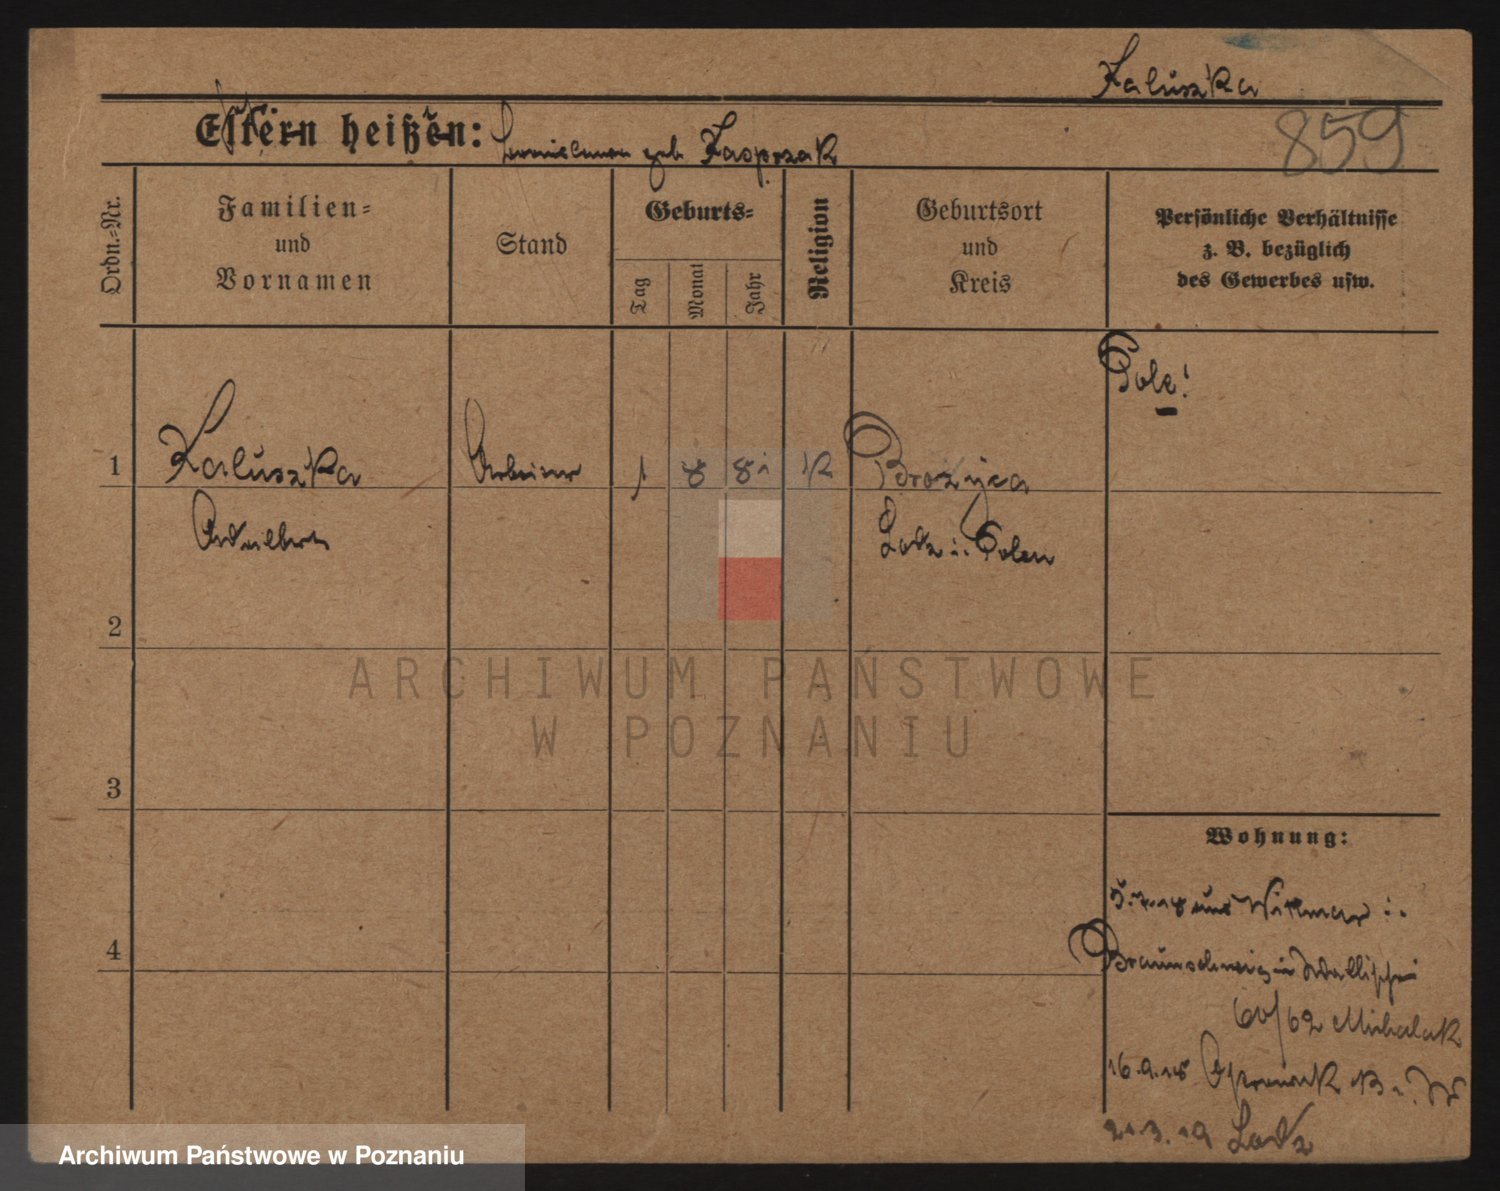 Kaluszka
859
Eltern heißen: geb. Kasprzak
Ordn.-Nr.
Familien-
und
Vornamen
Stand
Geburts-
Tag
Monat
Jahr
Religion
Geburtsort
und
Kreis
Persönliche Verhältnisse
z. B. bezüglich
des Gewerbes usw.
Pole!
1
Kaluszka
Arbeiter
1
8
81
K
Brozyca
Adalbert
Lodz i. Polen
2
3
4
ARCHIWUM PAŃSTWOWE
W POZNANIU
Wohnung:
aus i.
Braunschweig Wallischei
60/62 Michalak
16.9.18
21.3.19 Lodz
Archiwum Państwowe w Poznaniu